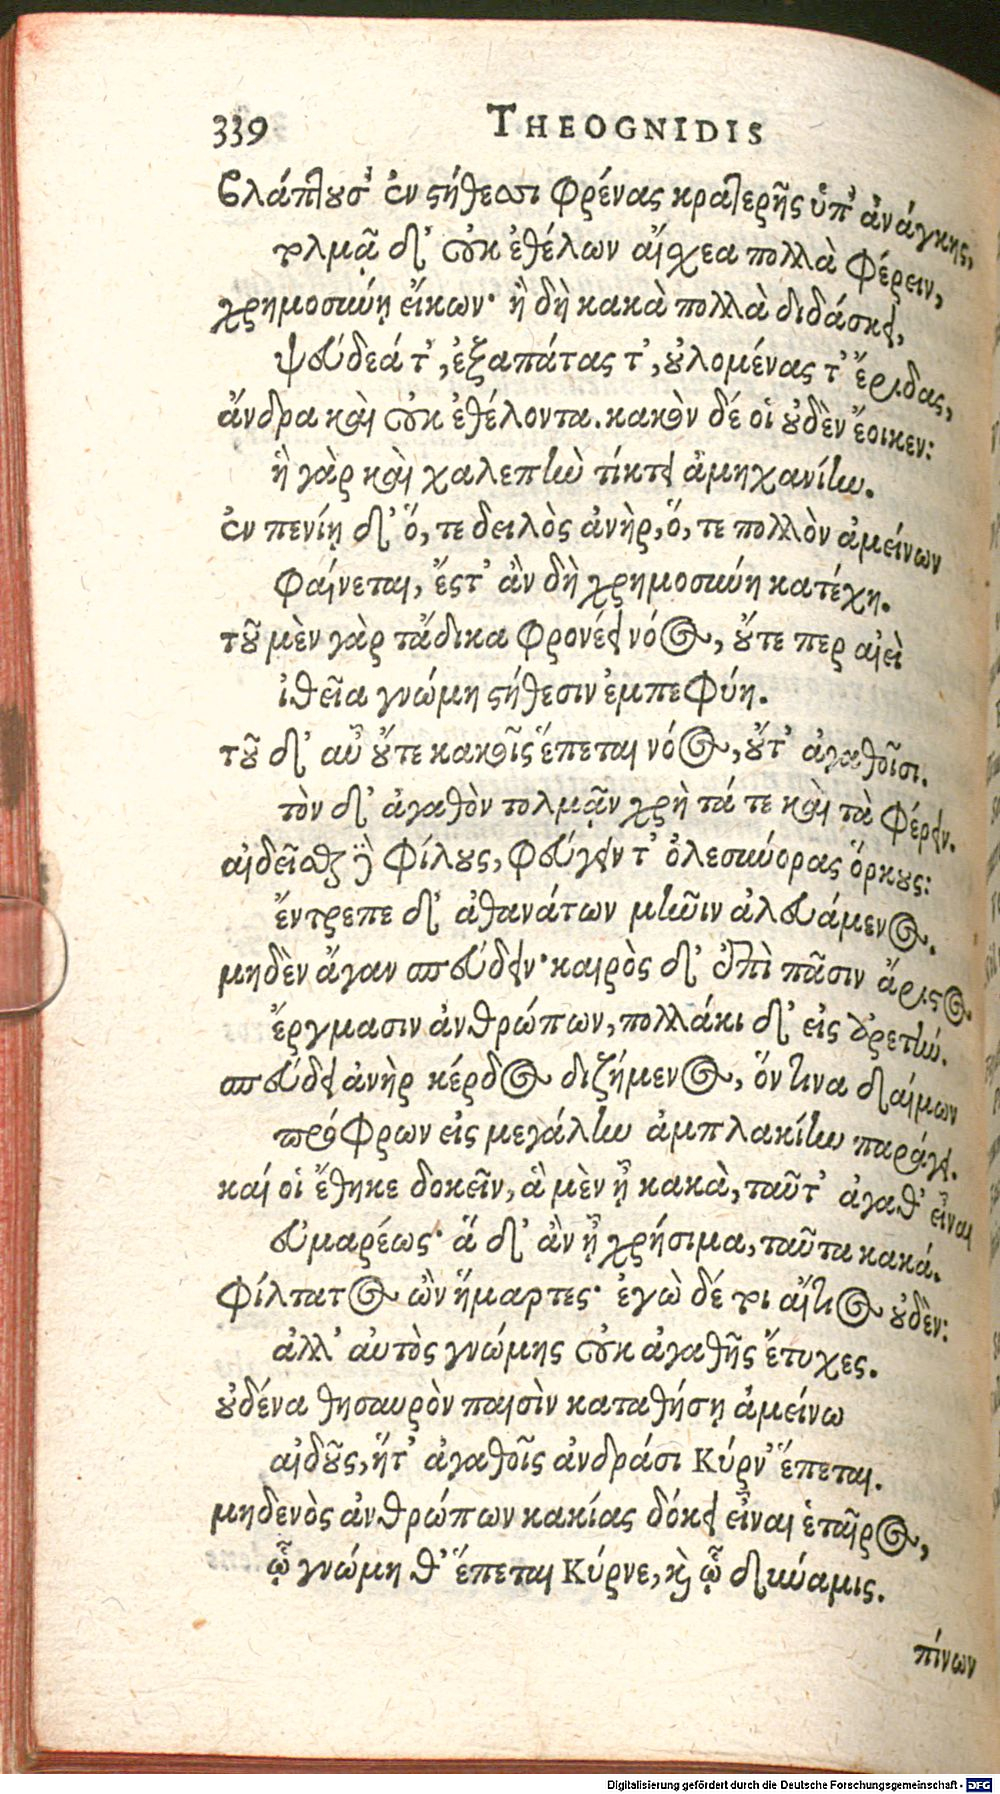 339 THEOGNIDIS
βλάπτουσ' ἐν στήθεσσι φρένας κρατερῆς ὑπ' ἀνάγκης,
τολμᾷ δ' οὐκ ἐθέλων αἴσχεα πολλὰ φέρειν,
χρημοσύνῃ εἴκων· ἣ δὴ κακὰ πολλὰ διδάσκει,
ψεύδεά τ', ἐξαπάτας τ', οὐλομένας τ' ἔριδας,
ἄνδρα καὶ οὐκ ἐθέλοντα. κακὸν δέ οἱ οὐδὲν ἔοικεν:
ἣ γὰρ καὶ χαλεπὴν τίκτει ἀμηχανίην.
ἐν πενίῃ δ' ὅ, τε δειλὸς ἀνὴρ, ὅ, τε πολλὸν ἀμείνων
φαίνεται, ἔστ' ἂν δὴ χρημοσύνη κατέχη.
τοῦ μὲν γὰρ τἄδικα φρονέει νόος, οὔτε περ αἰεὶ
ἰθεῖα γνώμη στήθεσιν ἐμπεφύη.
τοῦ δ' αὖ οὔτε κακοῖς ἕπεται νόος, οὔτ' ἀγαθοῖσι.
τὸν δ' ἀγαθὸν τολμᾷν χρὴ τά τε καὶ τὰ φέρειν.
αἰδεῖσθαι φίλους, φεύγειν τ' ὀλεσήνορας ὅρκους:
ἔντρεπε δ' ἀθανάτων μῆνιν ἀλευάμενος.
μηδὲν ἄγαν σπεύδειν· καιρὸς δ' ἐπὶ πᾶσιν ἄριστος
ἔργμασιν ἀνθρώπων, πολλάκι δ' εἰς ἀρετήν.
σπεύδει ἀνὴρ κέρδος διζήμενος, ὅντινα δαίμων
πρόφρων εἰς μεγάλην ἀμπλακίην παράγει.
καί οἱ ἔθηκε δοκεῖν, ἃ μὲν ᾖ κακὰ, ταῦτ' ἀγαθ' εἶναι
εὐμαρέως· ἃ δ' ἂν ᾖ χρήσιμα, ταῦτα κακά.
φίλτατος ὢν ἥμαρτες· ἐγὼ δέ τοι αἴτιος οὐδὲν:
ἀλλ' αὐτὸς γνώμης οὐκ ἀγαθῆς ἔτυχες.
οὐδένα θησαυρὸν παισὶν καταθήσῃ ἀμείνω
αἰδοῦς, ἥτ' ἀγαθοῖς ἀνδράσι Κύρν' ἕπεται.
μηδενὸς ἀνθρώπων κακίας δόκει εἶναι ἑταῖρος,
ᾧ γνώμη θ' ἕπεται Κύρνε, καὶ ᾧ δύναμις.
πίνων
Digitalisierung gefördert durch die Deutsche Forschungsgemeinschaft - DFG